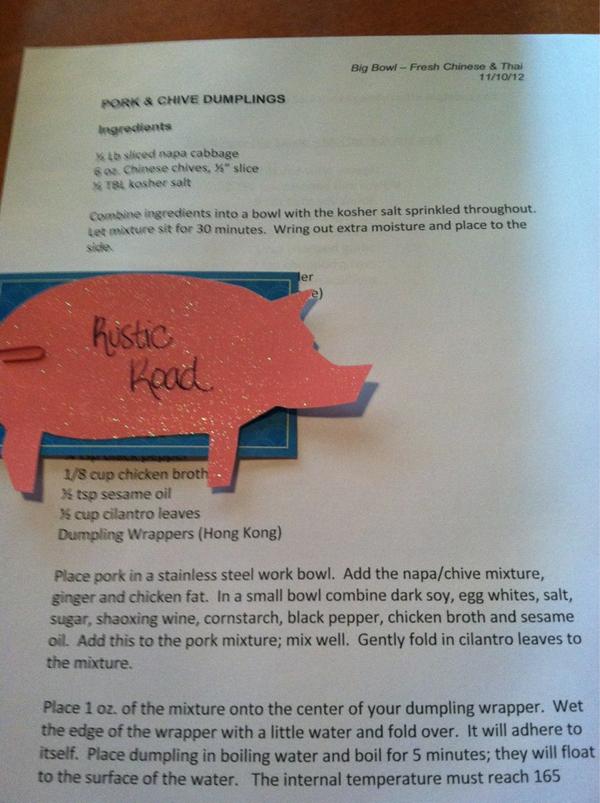 Big Bowl – Fresh Chinese & Thai
11/10/12
PORK & CHIVE DUMPLINGS
Ingredients
½ Lb sliced napa cabbage
6 oz. Chinese chives, ½" slice
½ TBL kosher salt
Combine ingredients into a bowl with the kosher salt sprinkled throughout.
Let mixture sit for 30 minutes. Wring out extra moisture and place to the
side.
der
e)
Rustic
Road
1/8 cup chicken broth
½ tsp sesame oil
½ cup cilantro leaves
Dumpling Wrappers (Hong Kong)
Place pork in a stainless steel work bowl. Add the napa/chive mixture,
ginger and chicken fat. In a small bowl combine dark soy, egg whites, salt,
sugar, shaoxing wine, cornstarch, black pepper, chicken broth and sesame
oil. Add this to the pork mixture; mix well. Gently fold in cilantro leaves to
the mixture.
Place 1 oz. of the mixture onto the center of your dumpling wrapper. Wet
the edge of the wrapper with a little water and fold over. It will adhere to
itself. Place dumpling in boiling water and boil for 5 minutes; they will float
to the surface of the water. The internal temperature must reach 165